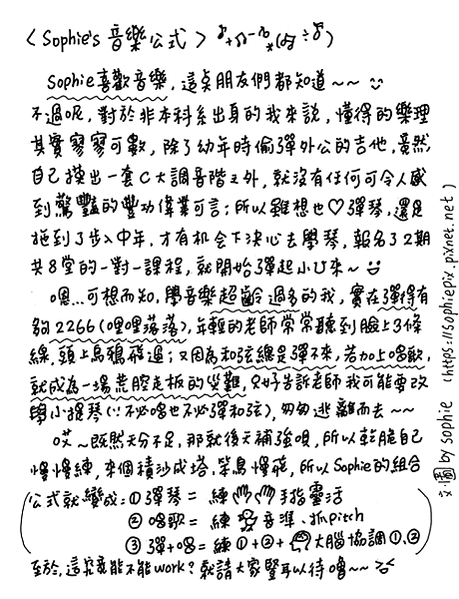 <Sophie's 音樂公式>
Sophie喜歡音樂，這點朋友們都知道~~
不過呢，對於非本科系出身的我來說，懂得的樂理
其實寥寥可數，除了幼年時偷彈外公的吉他，竟然
自己摸出一套C大調音階之外，就沒有任何可令人感
到驚豔的豐功偉業可言；所以雖想也♡彈琴，還是
拖到了步入中年，才有机会下決心去學琴，報名了2期
共8堂的一對一課程，就開始彈起小U來~
嗯...可想而知，學音樂超齡過多的我，實在彈得有
夠2266(哩哩落落)，年輕的老師常常聽到臉上3條
線，頭上烏鴉飛過；又因為和弦總是彈不來，若加上唱歌，
就成為一場荒腔走板的災難，只好告訴老師我可能要改
學小提琴(∵不必唱也不必彈和弦)，匆匆逃離而去~~
哎~既然天分不足，那就後天補強唄，所以乾脆自己
慢慢練，來個積沙成塔，笨鳥慢飛，所以Sophie的組合
公式就變成：①彈琴 = 練手指靈活
②唱歌 = 練音準、抓pitch
③彈+唱 = 練①+②+大腦協調①、②
至於，這究竟能不能work？就請大家豎耳以待嚕~~
文/圖 by sophie (https://sophiepix.pixnet.net)